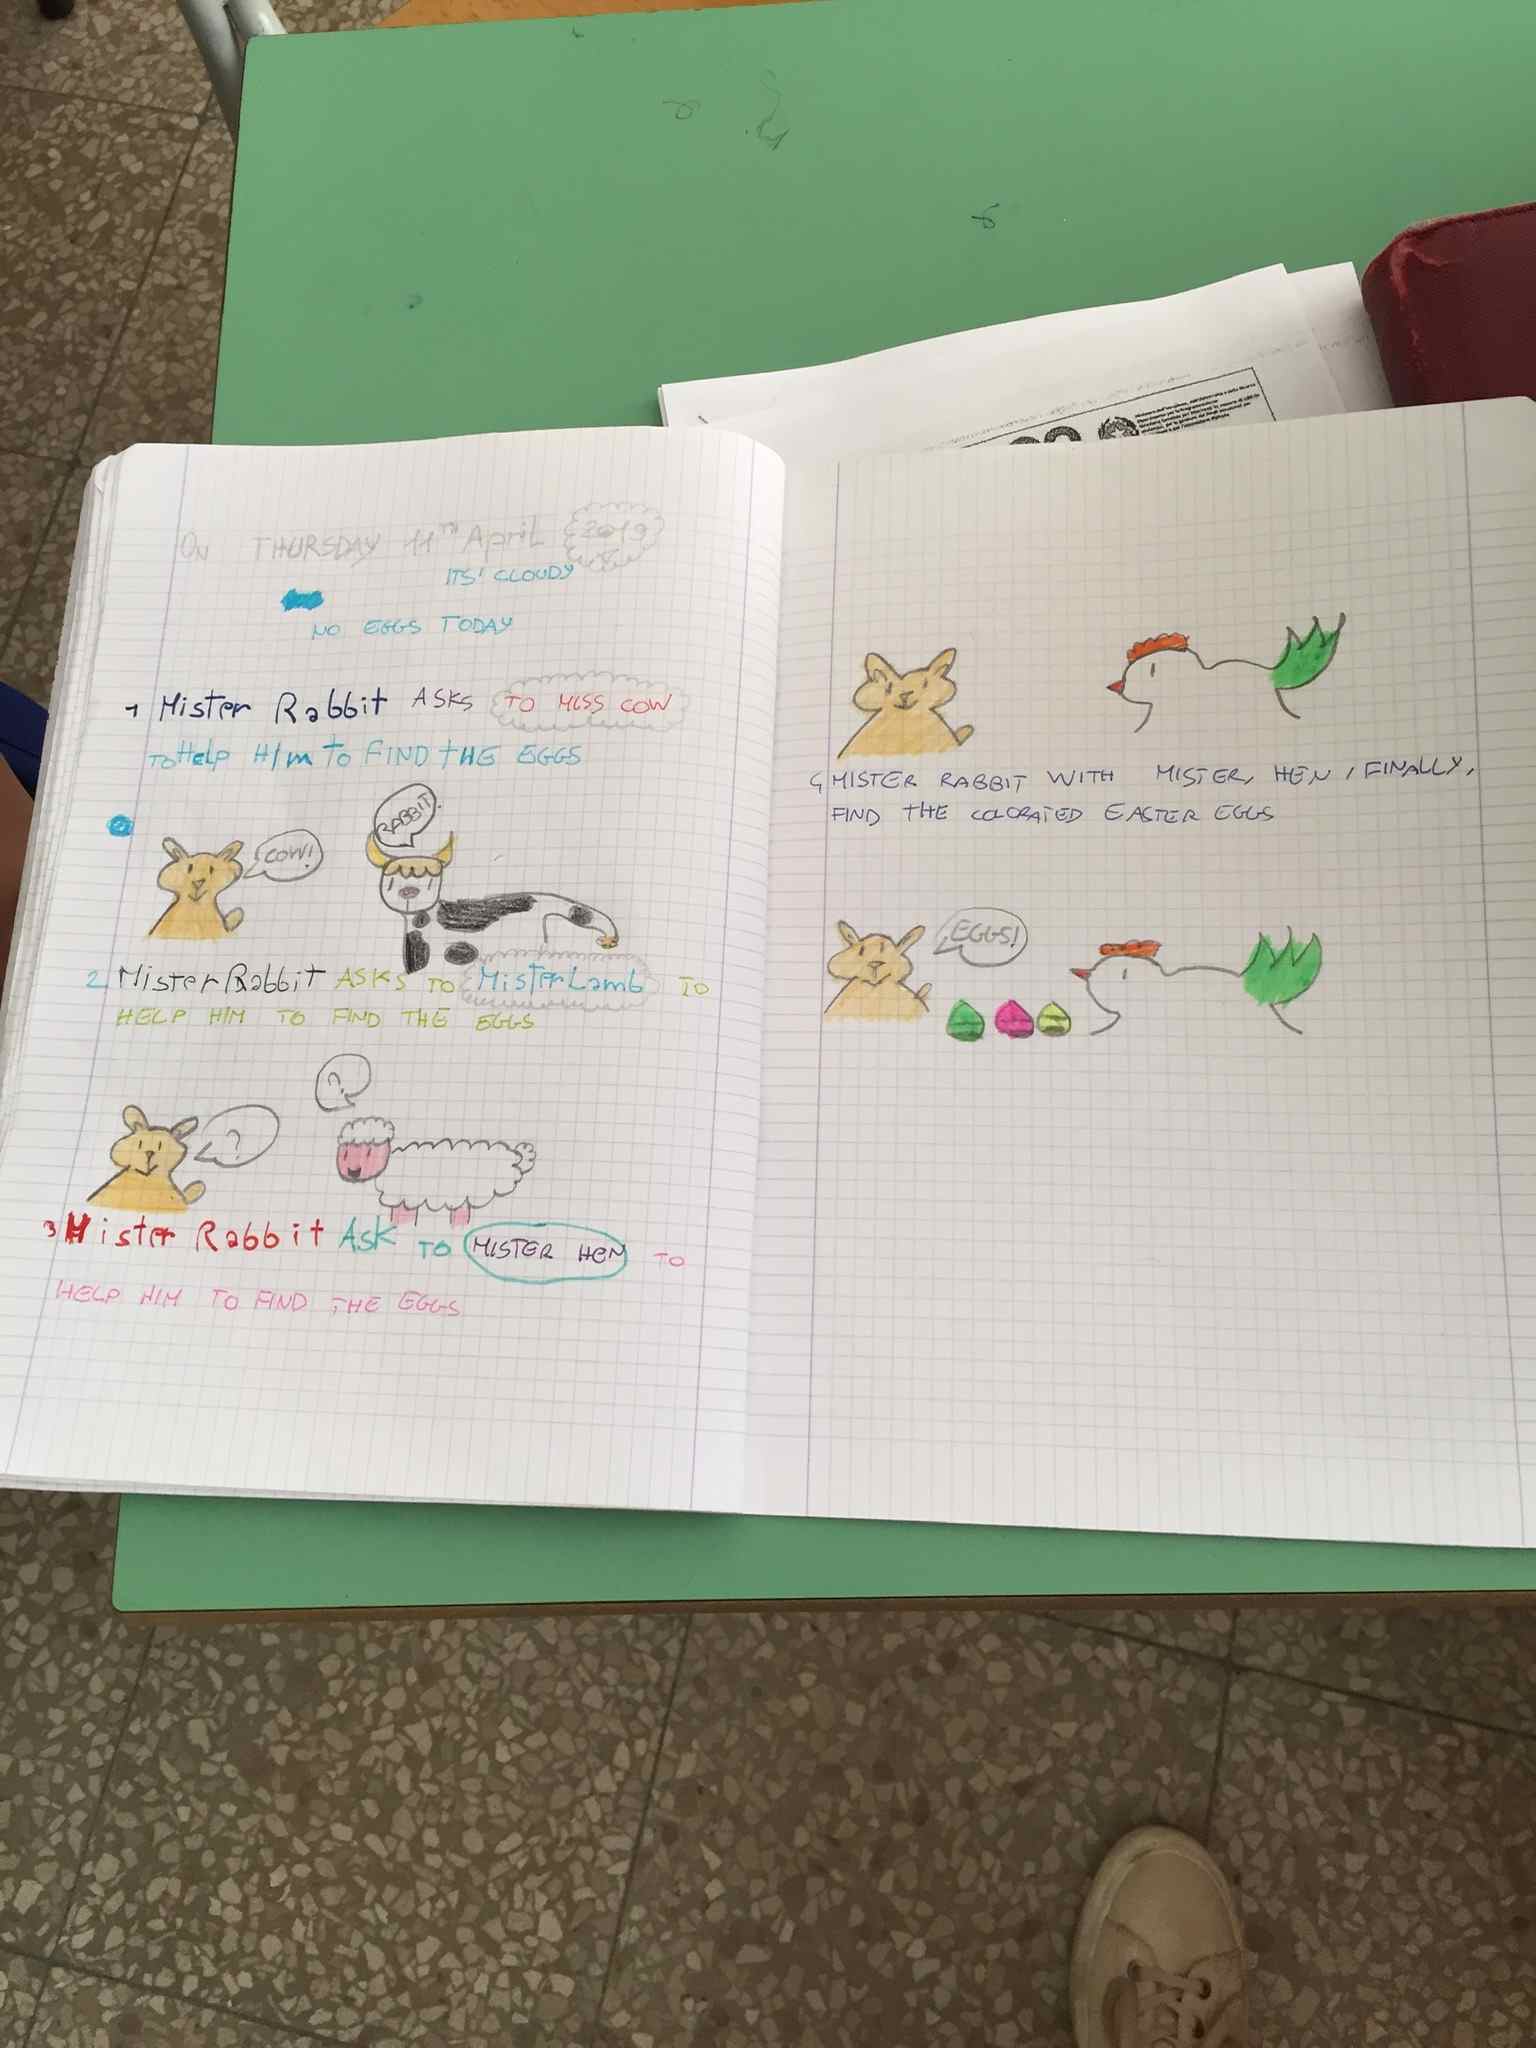 ON THURSDAY 11TH April 2019
ITS' CLOUDY
NO EGGS TODAY
1 Mister Rabbit ASKS TO MISS COW
TO Help HIm to FIND tHE EGGS
COW!
RABBIT!
2 Mister Rabbit ASKS TO Mister Lamb TO
HELP HIM TO FIND THE EGGS
?
?
3 Mister Rabbit ASK TO MISTER HEN TO
HELP HIM TO FIND THE EGGS
4 MISTER RABBIT WITH MISTER, HEN, FINALLY,
FIND tHE COLORATED EASTER EGGS
EGGS!